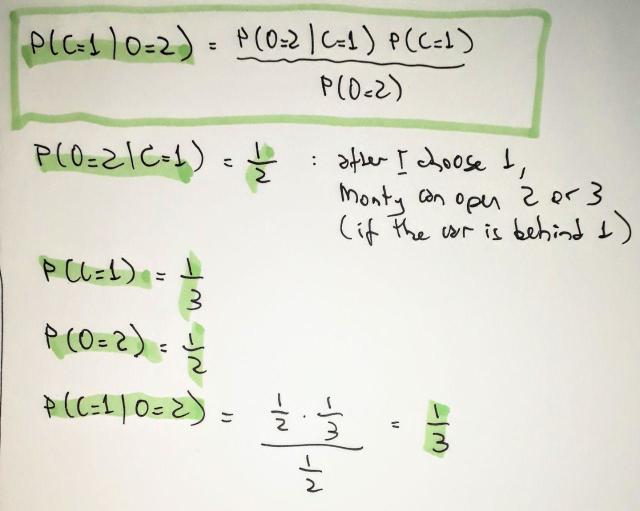 P(C=1|O=2) = P(O=2|C=1) P(C=1)
P(O=2)
P(O=2|C=1) = 1/2 : after I choose 1,
Monty can open 2 or 3
(if the car is behind 1)
P(C=1) = 1/3
P(O=2) = 1/2
P(C=1|O=2) = 1/2 · 1/3 = 1/3
1/2